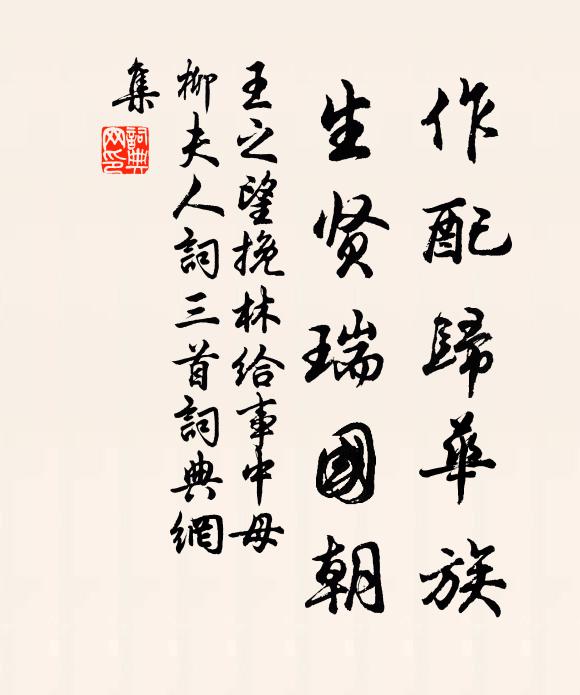 作配歸華族
生贤瑞國朝
王之望挽林给事中母
柳夫人詞三首詞典網
集
詞典網印